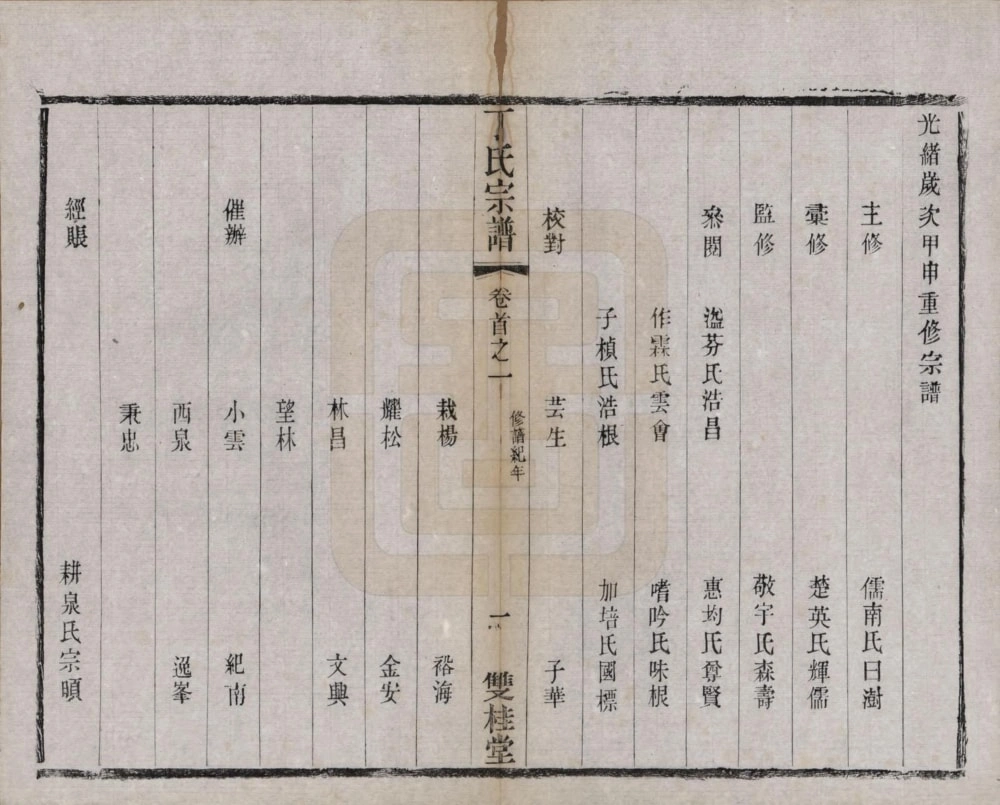 光緒歲次甲申重修宗譜
主修 儒南氏曰澍
彙修 楚英氏輝儒
監修 敬宇氏森壽
叅閱 溢芬氏浩昌 惠均氏尊賢
作霖氏雲會 嗜吟氏味根
子楨氏浩根 加培氏國標
校對 芸生 子華
丁氏宗譜 卷首之一 修譜紀年 一 雙桂堂
栽楊 裕海
耀松 金安
林昌 文典
望林
催辦 小雲 紀南
西泉 逸峯
秉忠
經賬 耕泉氏宗頎